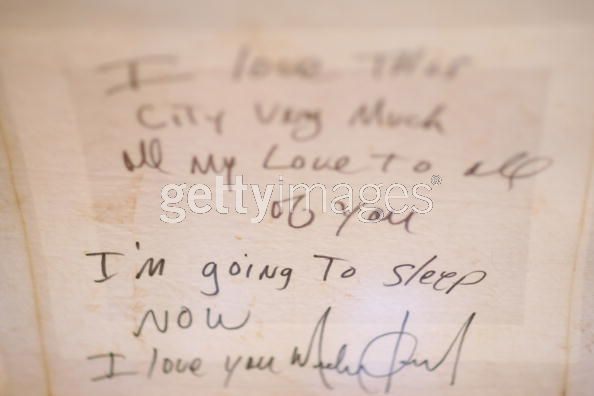 I love This
City Very Much
all My Love To all
of you
gettyimages®
I'm going To sleep
NOW
I love you